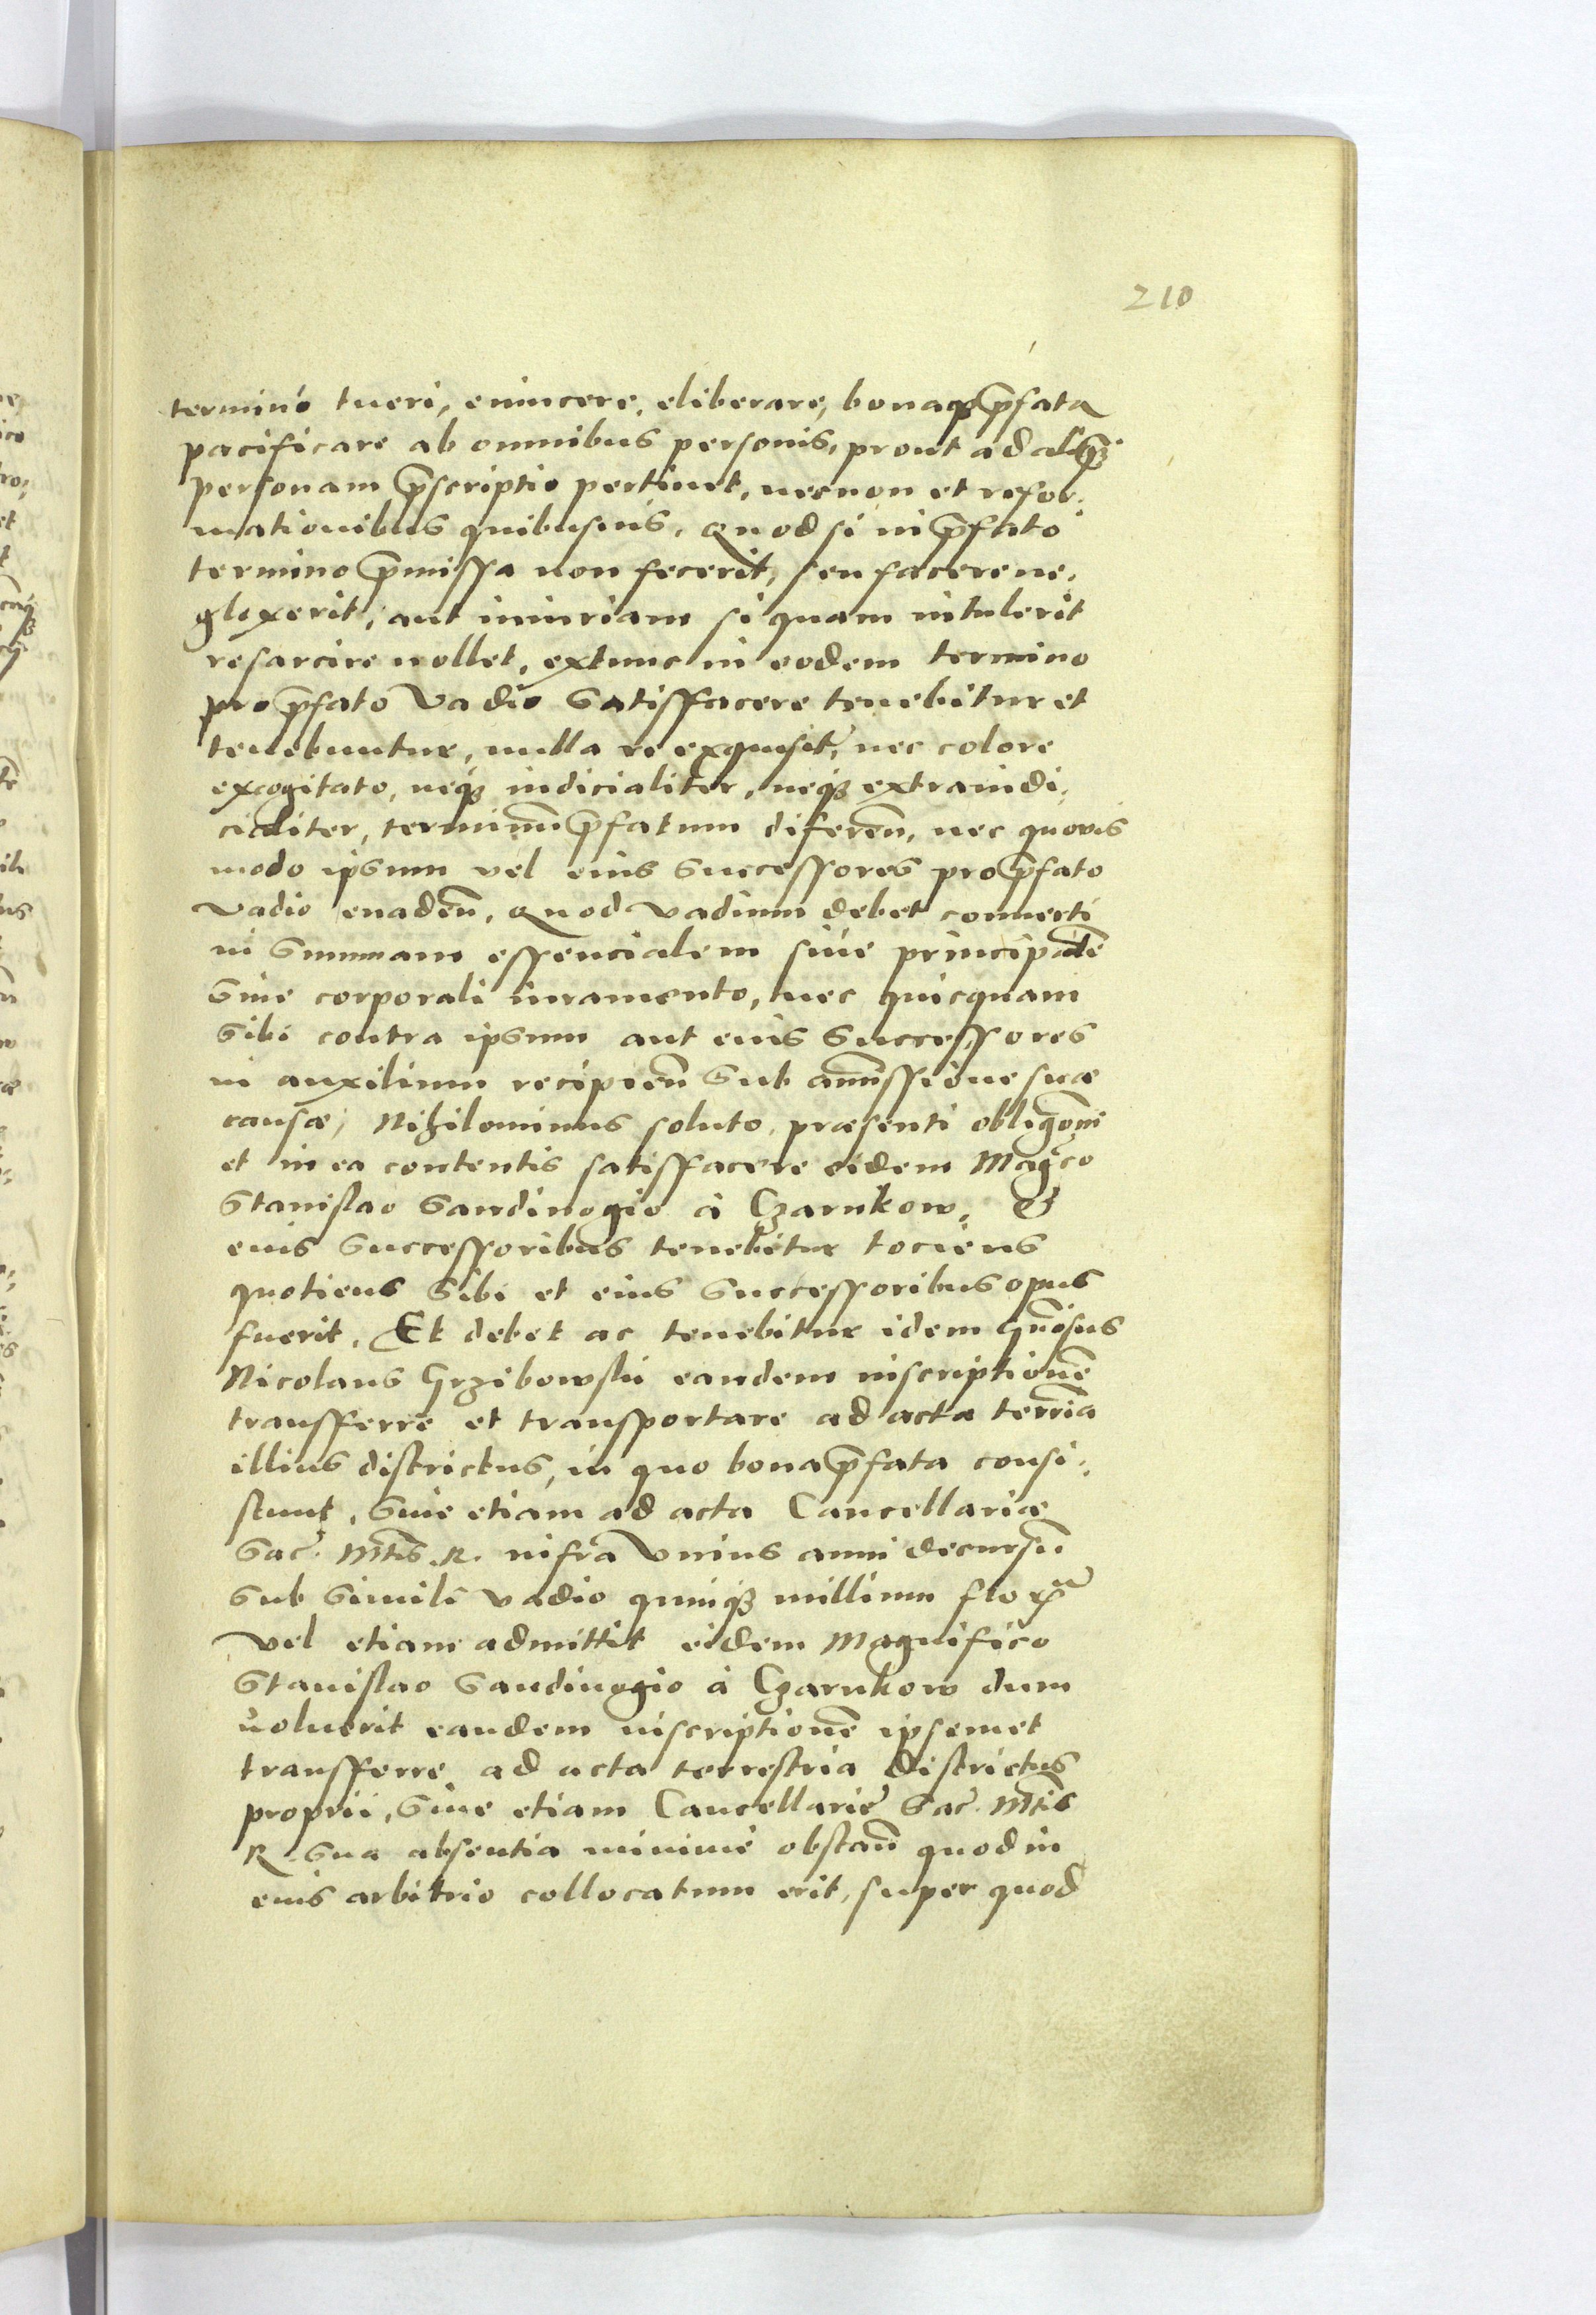 210
termino tueri, evincere, eliberare, bonaqꝫ p̄fata
pacificare ab omnibus personis, prout ad aliqꝫ
personam p̄scriptio pertinet, necnon et refor:
mationibus quibusvis. Quod si in p̄fato
termino p̄missa non fecerit, seu facere ne:
glexerit, aut iniuriam si quam intulerit
resarcire nollet, extunc in eodem termino
pro p̄fato vadio satisffacere tenebitur et
tenebuntur, nulla re exquisit̄, nec colore
excogitato, neqꝫ iudicialiter, neqꝫ extraiudi:
cialiter, terminū p̄fatum diferen̄, nec quovis
modo ipsum vel eius successores pro p̄fato
vadio evaden̄. Quod vadium debet converti
in summam essencialem sive principalē
sine corporali iuramento, nec quicquam
sibi contra ipsum aut eius successores
in auxilium recipien̄ sub amīssione suæ
causæ, Nihilominus soluto, præsenti obligōni
et in ea contentis satisffacere eidem Mag̃co
Stanislao Sandivogio à Czarnkow, &
eius successoribus tenebitur tociens
quotiens sibi et eius successoribus opus
fuerit. Et debet ac tenebitur idem gn̄osus
Nicolaus Grzibowski eandem inscriptionē
transfferre et transportare ad acta terr̄ria
illius districtus, in quo bona p̄fata consi:
stunt, sive etiam ad acta Cancellariæ
Sac̄. Mtīs. R. infra unius anni decursū
sub simili vadio quinqꝫ millium flor̄
vel etiam admittit eidem Magnifico
Stanislao Sandivogio à Czarnkow dum
voluerit eandem inscriptionē ipsemet
transfferre ad acta terrestria districtus
proprii, sive etiam Cancellarie Sac̄. Mtīs
R. Sua absentia minime obstan̄ quod in
eius arbitrio collocatum erit, super quod